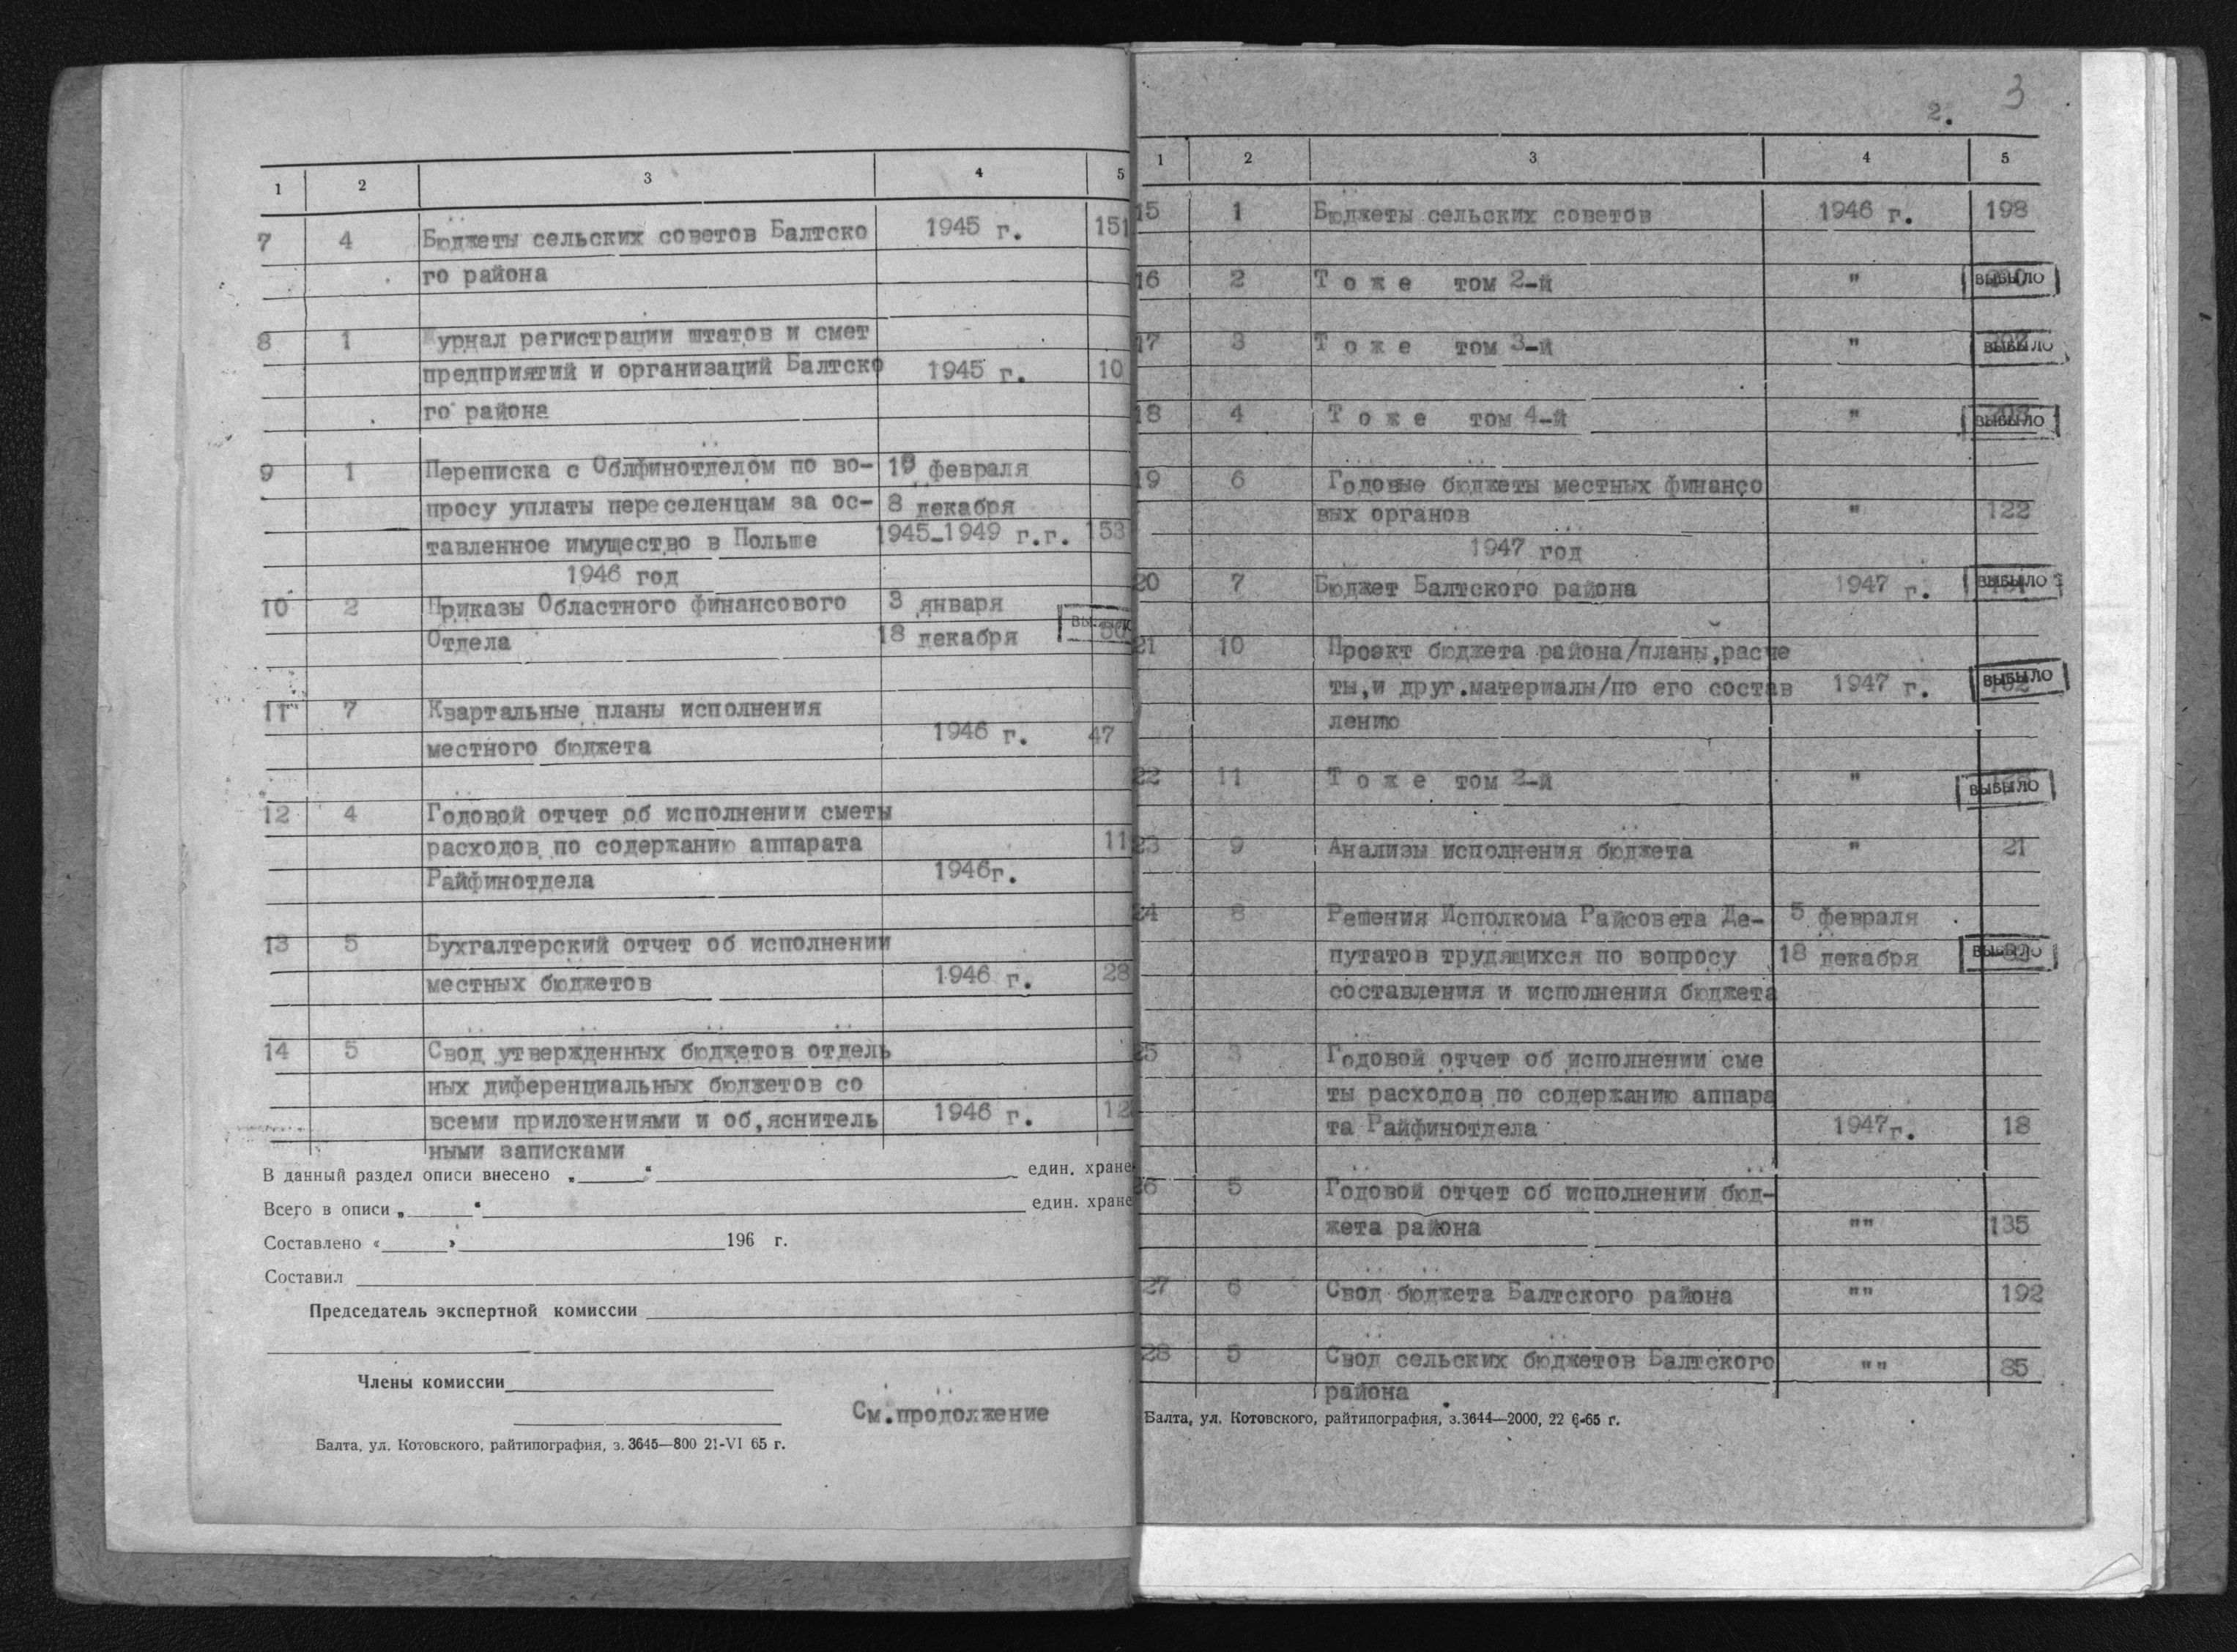 1 2 3 4 5
7 4 Бюджеты сельских советов Балтско 1945 г. 151
го района
8 1 Журнал регистрации штатов и смет
предприятий и организаций Балтско 1945 г. 10
го района
9 1 Переписка с Облфинотделом по во- февраля
просу уплаты переселенцам за ос- 8 декабря
тавленное имущество в Польше 1945-1949 г.г. 153
1946 год
10 2 Приказы Областного финансового 3 января
Отдела 18 декабря
11 7 Квартальные планы исполнения
местного бюджета 1946 г. 47
12 4 Годовой отчет об исполнении сметы
расходов по содержанию аппарата 11
Райфинотдела 1946г.
13 5 Бухгалтерский отчет об исполнении
местных бюджетов 1946 г. 28
14 5 Свод утвержденных бюджетов отдель
ных диференциальных бюджетов со
всеми приложениями и об,яснитель 1946 г. 12
ными записками
В данный раздел описи внесено „ “ един. хране
Всего в описи „ “ един. хране
Составлено « » 196 г.
Составил
Председатель экспертной комиссии
Члены комиссии
См.продолжение
Балта, ул. Котовского, райтипография, з. 3645—800 21-VI 65 г.
3
2.
1 2 3 4 5
15 1 Бюджеты сельских советов 1946 г. 198
16 2 Т о ж е том 2-й " ВЫБЫЛО
17 3 Т о ж е том 3-й " ВЫБЫЛО
18 4 Т о ж е том 4-й " ВЫБЫЛО
19 6 Годовые бюджеты местных финансо
вых органов " 122
1947 год
20 7 Бюджет Балтского района 1947 г. ВЫБЫЛО
21 10 Проэкт бюджета района/планы,расче
ты,и друг.материалы/по его состав 1947 г. ВЫБЫЛО
лению
22 11 Т о ж е том 2-й " ВЫБЫЛО
23 9 Анализы исполнения бюджета " 21
24 8 Решения Исполкома Райсовета Де- 5 февраля
путатов трудящихся по вопросу 18 декабря ВЫБЫЛО
составления и исполнения бюджета
25 3 Годовой отчет об исполнении сме
ты расходов по содержанию аппара
та Райфинотдела 1947г. 18
26 5 Годовой отчет об исполнении бюд-
жета района "" 135
27 6 Свод бюджета Балтского района "" 192
28 5 Свод сельских бюджетов Балтского "" 85
района
Балта, ул. Котовского, райтипография, з.3644—2000, 22 6-65 г.